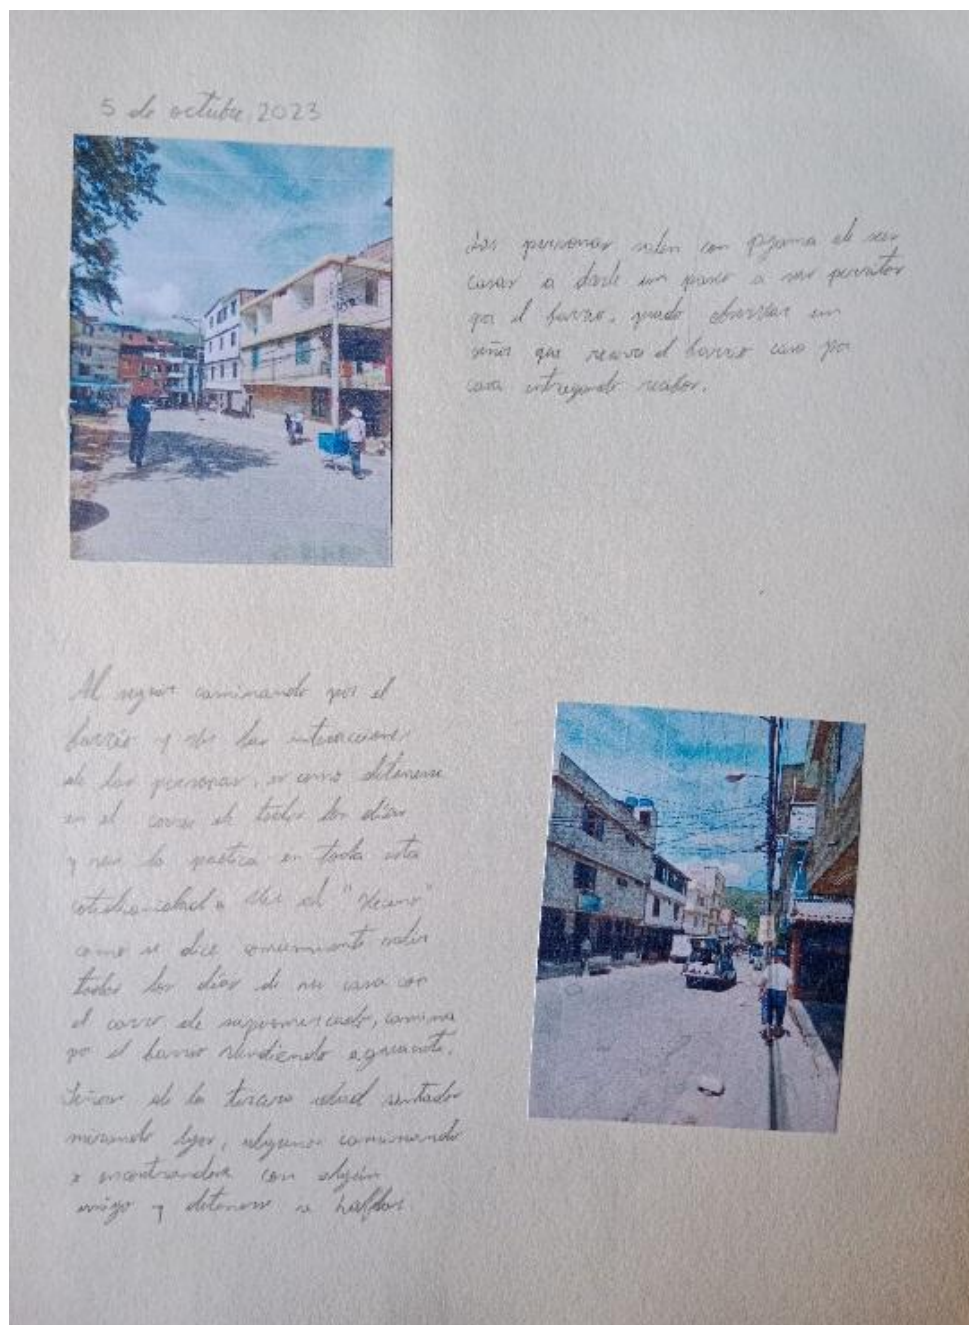 5 de octubre, 2023
Las personas salen con pijama de sus
casas a darle un paseo a sus perritos
por el barrio, puedo observar un
señor que recorre el barrio casa por
casa entregando recibos.
Al seguir caminando por el
barrio y ver las interacciones
de las personas, es como detenerse
en el de todos los días
y ver la poética en toda esta
cotidianidad ver al "Vecino"
como se dice comúnmente salir
todos los días de su casa con
el carro de supermercado, camina
por el barrio vendiendo aguacate.
Señores de la tercera edad sentados
mirando lejos, algunos caminando
o encontrandose con algún
amigo y detenerse a hablar.